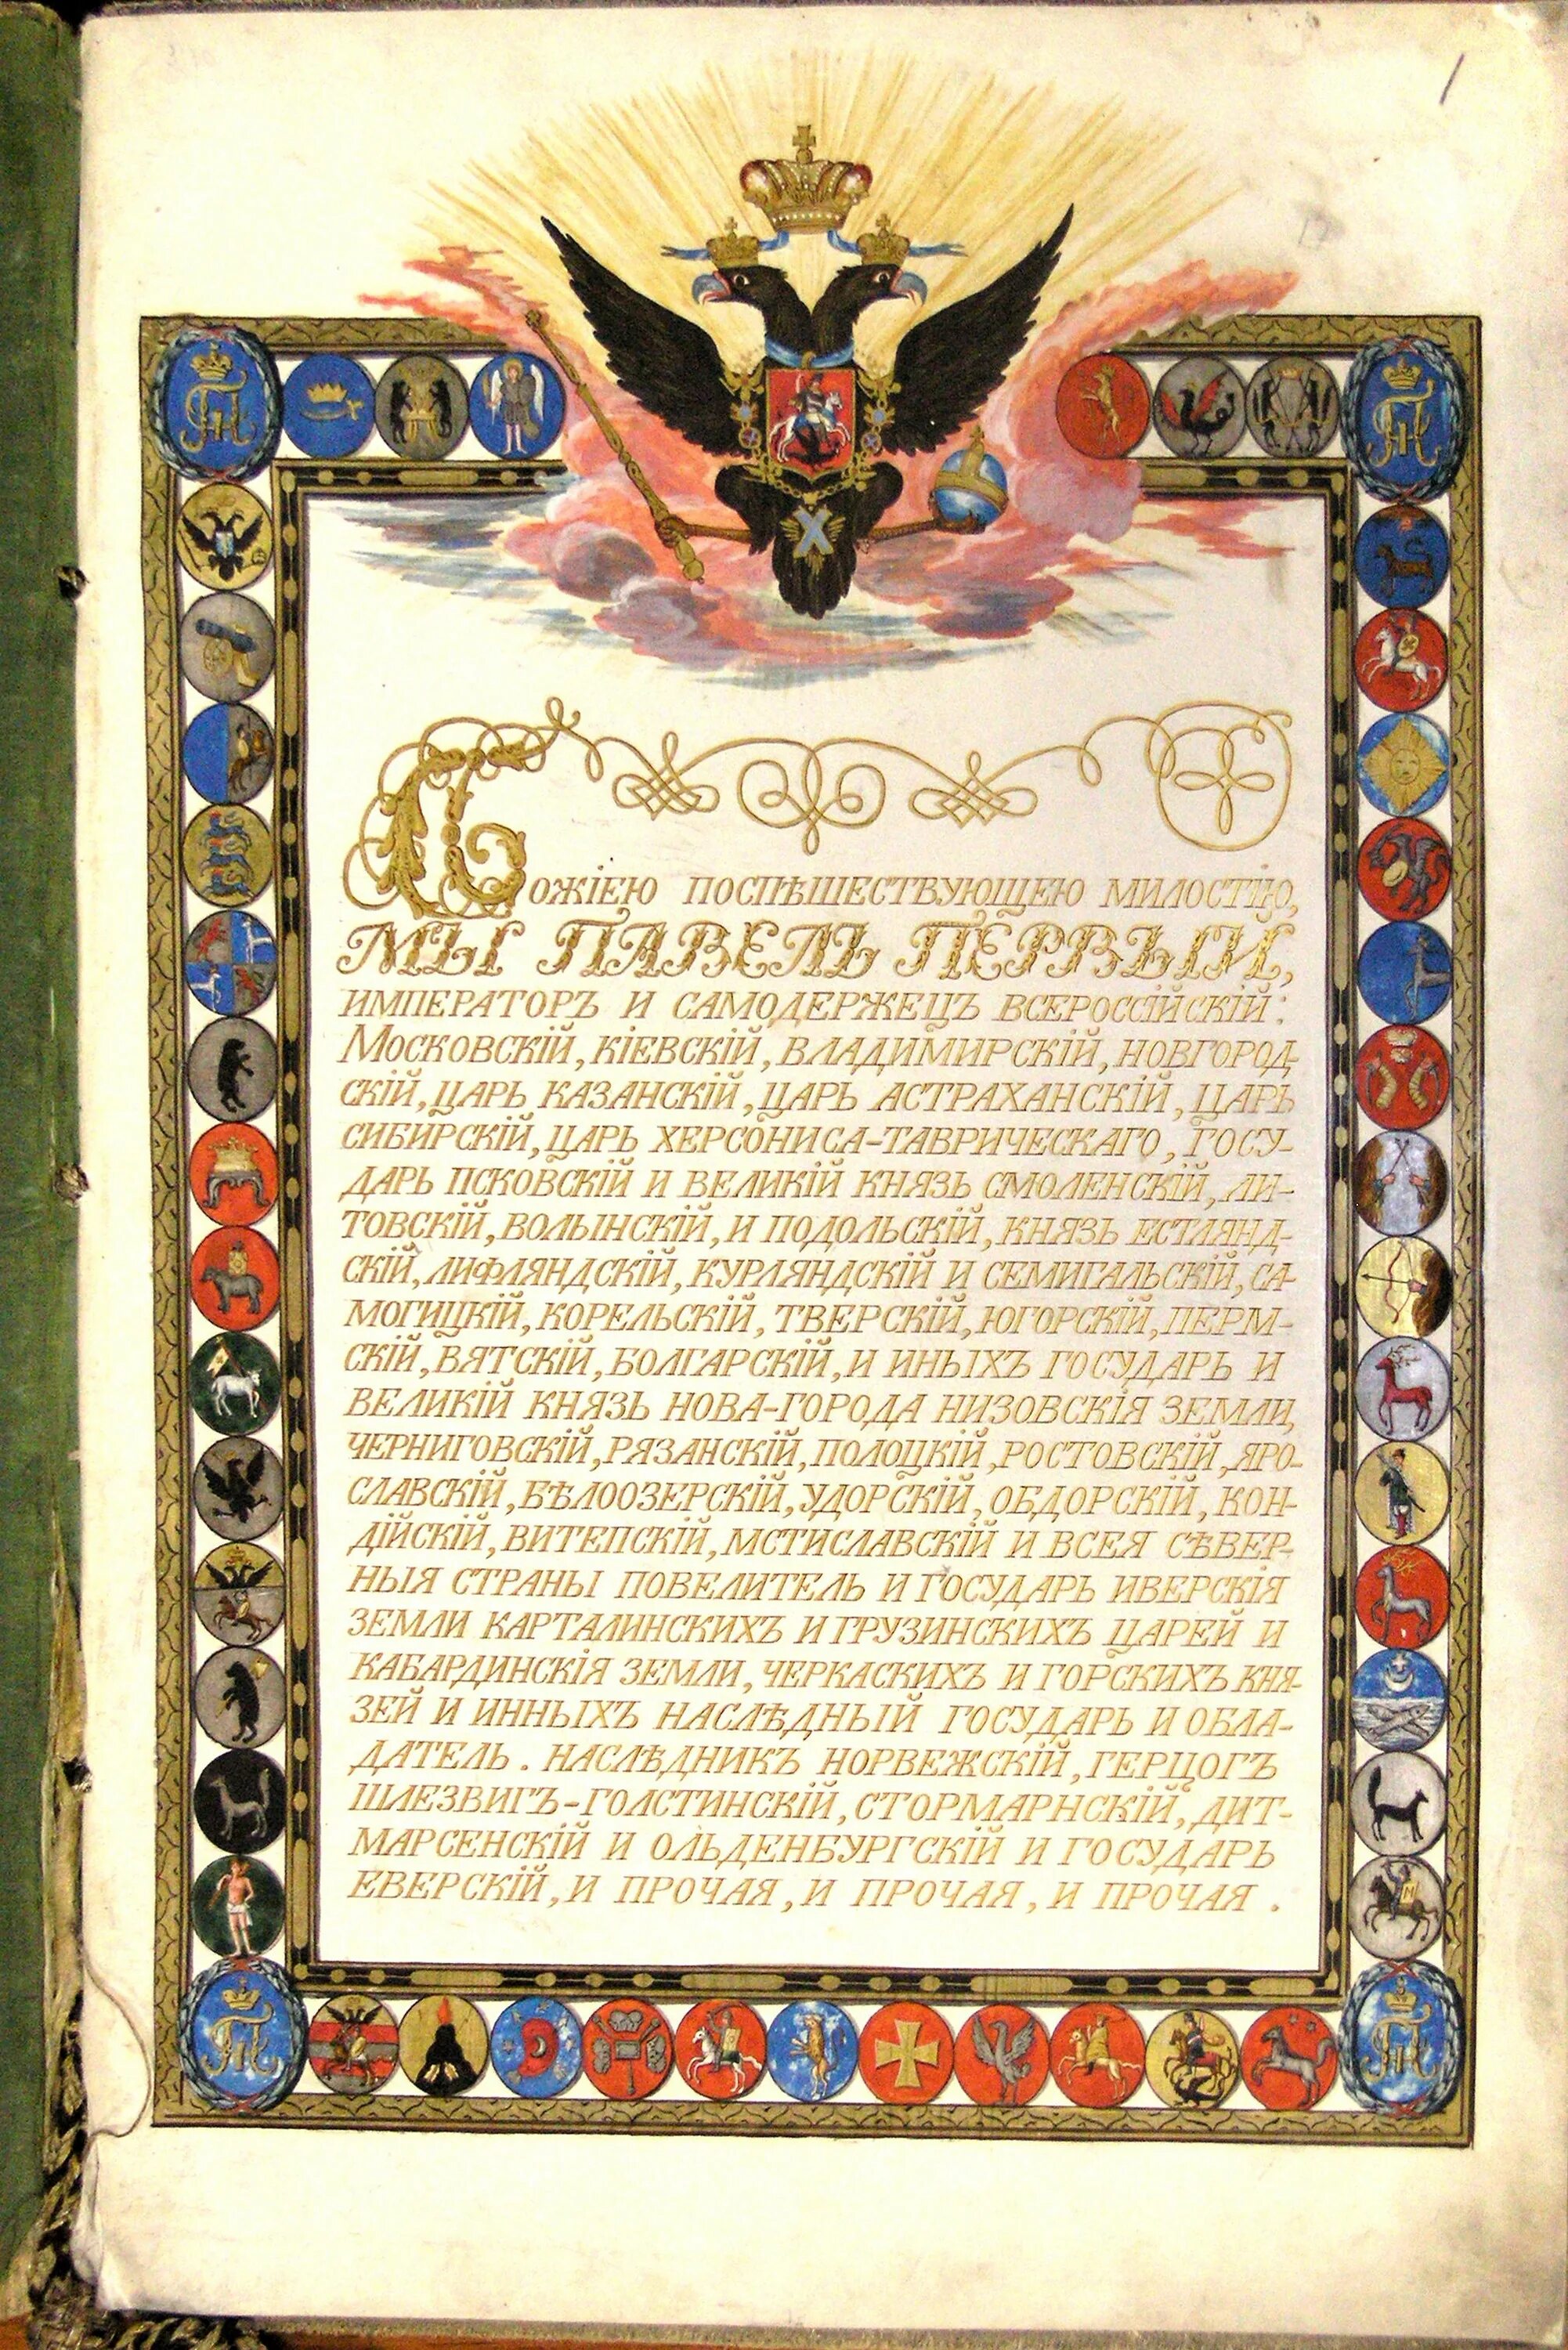 /
Божіею поспѣшествующею милостію,
МЫ ПАВЕЛЪ ПЕРВЫЙ,
ИМПЕРАТОРЪ И САМОДЕРЖЕЦЪ ВСЕРОССІЙСКІЙ:
МОСКОВСКІЙ, КІЕВСКІЙ, ВЛАДИМИРСКІЙ, НОВГОРОД-
СКІЙ, ЦАРЬ КАЗАНСКІЙ, ЦАРЬ АСТРАХАНСКІЙ, ЦАРЬ
СИБИРСКІЙ, ЦАРЬ ХЕРСОНИСА-ТАВРИЧЕСКАГО, ГОСУ-
ДАРЬ ПСКОВСКІЙ И ВЕЛИКІЙ КНЯЗЬ СМОЛЕНСКІЙ, ЛИ-
ТОВСКІЙ, ВОЛЫНСКІЙ, И ПОДОЛЬСКІЙ, КНЯЗЬ ЕСТЛЯНД-
СКІЙ, ЛИФЛЯНДСКІЙ, КУРЛЯНДСКІЙ И СЕМИГАЛЬСКІЙ, СА-
МОГИЦКІЙ, КОРЕЛЬСКІЙ, ТВЕРСКІЙ, ЮГОРСКІЙ, ПЕРМ-
СКІЙ, ВЯТСКІЙ, БОЛГАРСКІЙ, И ИНЫХЪ ГОСУДАРЬ И
ВЕЛИКІЙ КНЯЗЬ НОВА-ГОРОДА НИЗОВСКІЯ ЗЕМЛИ,
ЧЕРНИГОВСКІЙ, РЯЗАНСКІЙ, ПОЛОЦКІЙ, РОСТОВСКІЙ, ЯРО-
СЛАВСКІЙ, БѢЛООЗЕРСКІЙ, УДОРСКІЙ, ОБДОРСКІЙ, КОН-
ДІЙСКІЙ, ВИТЕПСКІЙ, МСТИСЛАВСКІЙ И ВСЕЯ СѢВЕР-
НЫЯ СТРАНЫ ПОВЕЛИТЕЛЬ И ГОСУДАРЬ ИВЕРСКІЯ
ЗЕМЛИ КАРТАЛИНСКИХЪ И ГРУЗИНСКИХЪ ЦАРЕЙ И
КАБАРДИНСКІЯ ЗЕМЛИ, ЧЕРКАСКИХЪ И ГОРСКИХЪ КНЯ-
ЗЕЙ И ИННЫХЪ НАСЛѢДНЫЙ ГОСУДАРЬ И ОБЛА-
ДАТЕЛЬ. НАСЛѢДНИКЪ НОРВЕЖСКІЙ, ГЕРЦОГЪ
ШЛЕЗВИГЪ-ГОЛСТИНСКІЙ, СТОРМАРНСКІЙ, ДИТ-
МАРСЕНСКІЙ И ОЛЬДЕНБУРГСКІЙ И ГОСУДАРЬ
ЕВЕРСКІЙ, И ПРОЧАЯ, И ПРОЧАЯ, И ПРОЧАЯ.